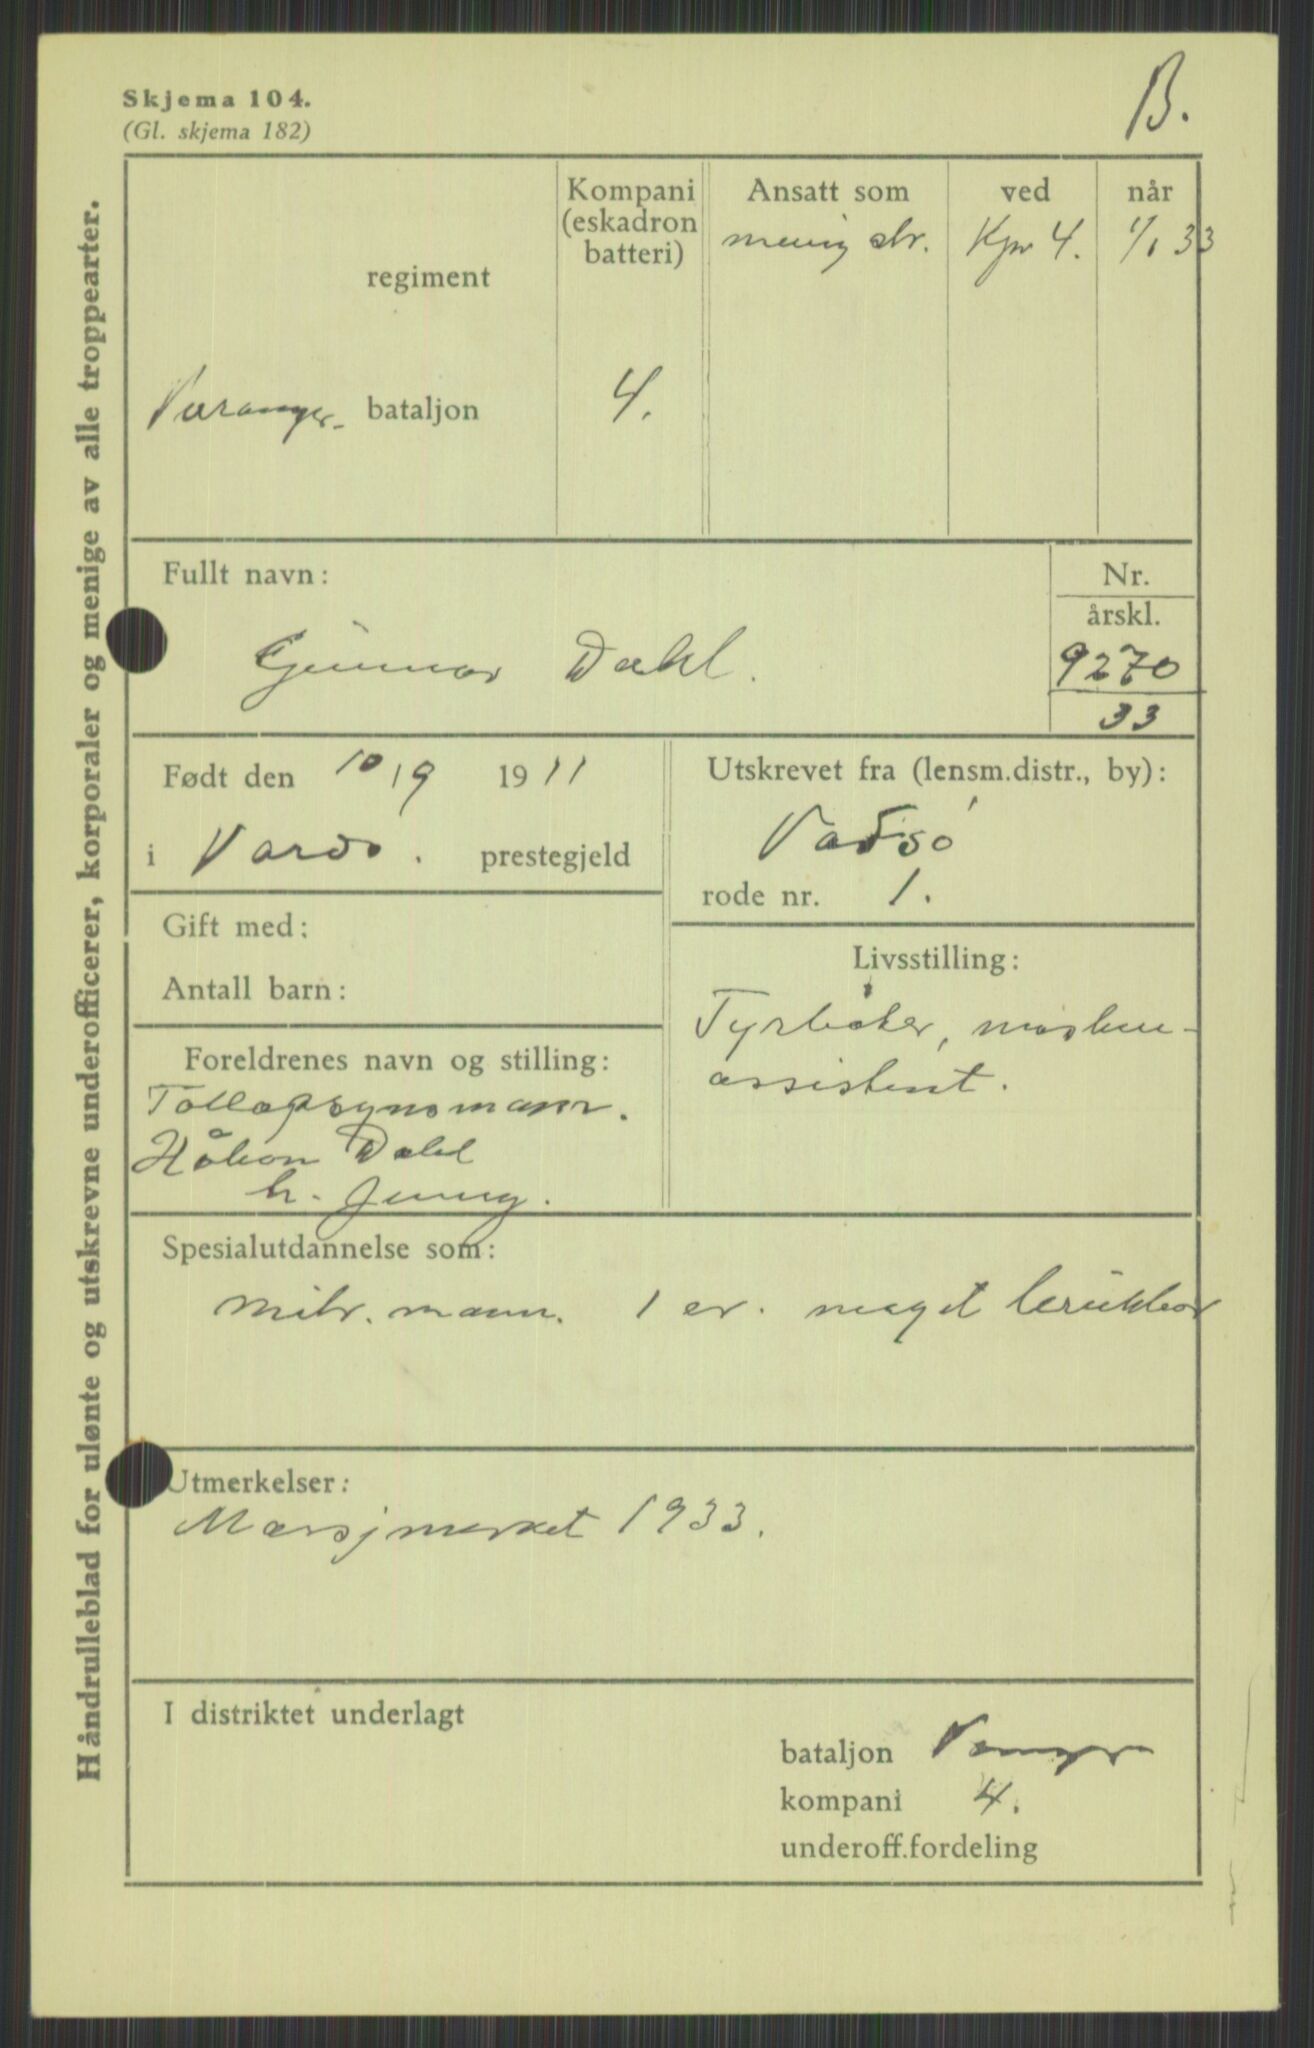 B.
Skjema 104.
(Gl. skjema 182)
Håndrulleblad for ulønte og utskrevne underofficerer, korporaler og menige av alle troppearter.
Kompani (eskadron batteri)
Ansatt som
ved
når
menig str.
Kp 4.
1/1 33
regiment
Varanger- bataljon
4.
Fullt navn:
Nr.
årskl.
Gunnar Dahl.
9270
33
Født den 10/9 1911
i Vardø. prestegjeld
Utskrevet fra (lensm.distr., by):
Vadsø
rode nr. 1.
Gift med:
Antall barn:
Livsstilling:
Fyrbøter, maskin-
assistent.
Foreldrenes navn og stilling:
Tollopsynsmann.
Håkon Dahl
h. Jenny.
Spesialutdannelse som:
mitr. mann. 1 er. meget brukbar
Utmerkelser:
Marsjmerket 1933.
I distriktet underlagt
bataljon Varanger
kompani 4.
underoff.fordeling